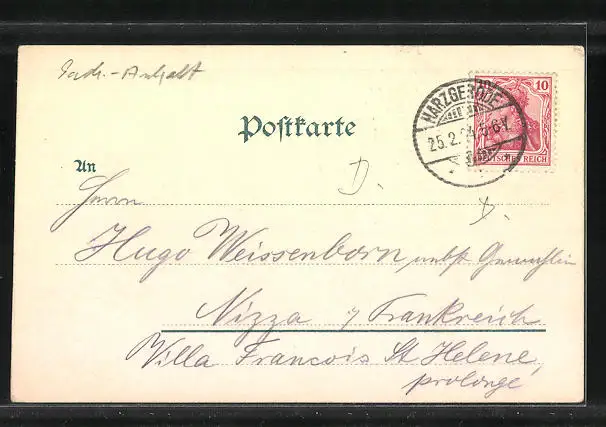 Sachs.-Anhalt
10
HARZGERODE
25.2. 5-6V.
DEUTSCHES REICH
Postkarte
An
D.
Herrn
Hugo Weissenborn, nebst Gemahlin
Nizza / Frankreich
Villa Francois St Helene,
prolongé